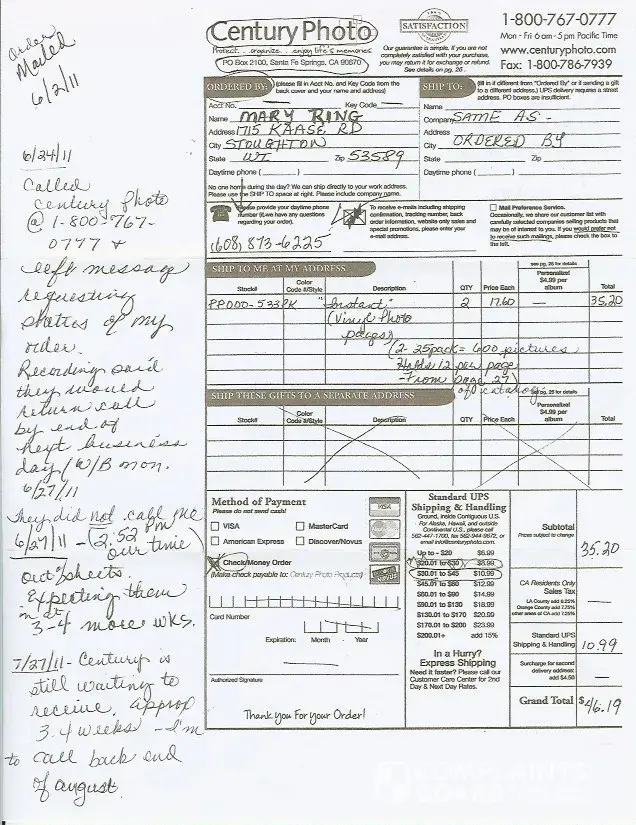 Order
Mailed
6/2/11
6/24/11
Called
Century Photo
@ 1-800-767-
0777 +
left message
requesting
status of my
order.
Recording said
they would
return call
by end of
next business
day/W/B mon.
6/27/11
They did not call me
6/27/11 - (2:52 pm
our time
out/sheets.
Expecting them
in at
3-4 more wks.
7/27/11 - Century is
still waiting to
receive. Approx
3-4 weeks - I'm
to call back end
of august.
Century Photo
Protect... organize... enjoy life's memories
PO Box 2100, Santa Fe Springs, CA 90670
SATISFACTION
Our guarantee is simple. If you are not
completely satisfied with your purchase,
you may return it for exchange or refund.
See details on pg. 26.
1-800-767-0777
Mon - Fri 6 am - 5 pm Pacific Time
www.centuryphoto.com
Fax: 1-800-786-7939
ORDERED BY: (please fill in Acct No. and Key Code from the
back cover and your name and address)
Acct No. Key Code
Name MARY RING
Address 1715 KAASE RD
City STOUGHTON
State WI Zip 53589
Daytime phone ( )
No one home during the day? We can ship directly to your work address.
Please use the SHIP TO space at right. Please include company name.
SHIP TO: (fill in if different from "Ordered By" or if sending a gift
to a different address.) UPS delivery requires a street
address. PO boxes are insufficient.
Name
Company SAME AS -
Address
City ORDERED BY
State Zip
Daytime phone ( )
Please provide your daytime phone
number (if we have any questions
regarding your order).
(608) 873-6225
To receive e-mails including shipping
confirmation, tracking number, back
order information, website only sales and
special promotions, please enter your
e-mail address.
Mail Preference Service.
Occasionally, we share our customer list with
carefully selected companies selling products that
may be of interest to you. If you would prefer not
to receive such mailings, please check the box to
the left.
SHIP TO ME AT MY ADDRESS
see pg. 26 for details
Stock# Color Code #/Style Description QTY Price Each Personalized $4.99 per album Total
PP000-533PK "Instant" 2 17.60 — 35.20
(Vinyl Photo
pages)
(2- 25pack = 600 pictures
Holds 12 per page
-From page 27)
of catalog
SHIP THESE GIFTS TO A SEPARATE ADDRESS
see pg. 26 for details
Stock# Color Code #/Style Description QTY Price Each Personalized $4.99 per album Total
Method of Payment
Please do not send cash!
VISA MasterCard
American Express Discover/Novus
Check/Money Order
(Make check payable to: Century Photo Products)
VISA
Card Number
Expiration: Month Year
Authorized Signature
Thank You For Your Order!
Standard UPS
Shipping & Handling
Ground, inside Contiguous U.S.
For Alaska, Hawaii, and outside
Continental U.S., please call
562-441-1700, fax 562-944-9672, or
email info@centuryphoto.com.
Up to - $20 $6.99
$20.01 to $30 $8.99
$30.01 to $45 $10.99
$45.01 to $60 $12.99
$60.01 to $90 $14.99
$90.01 to $130 $18.99
$130.01 to $170 $20.99
$170.01 to $200 $23.99
$200.01+ add 15%
In a Hurry?
Express Shipping
Need it faster? Please call our
Customer Care Center for 2nd
Day & Next Day Rates.
Subtotal
Prices subject to change
35.20
CA Residents Only
Sales Tax
LA County add 8.25%
Orange County add 7.75%
other areas of CA add 7.25%
—
Standard UPS
Shipping & Handling 10.99
Surcharge for second
delivery address:
add $4.50 —
Grand Total $46.19
COMPLAINTS